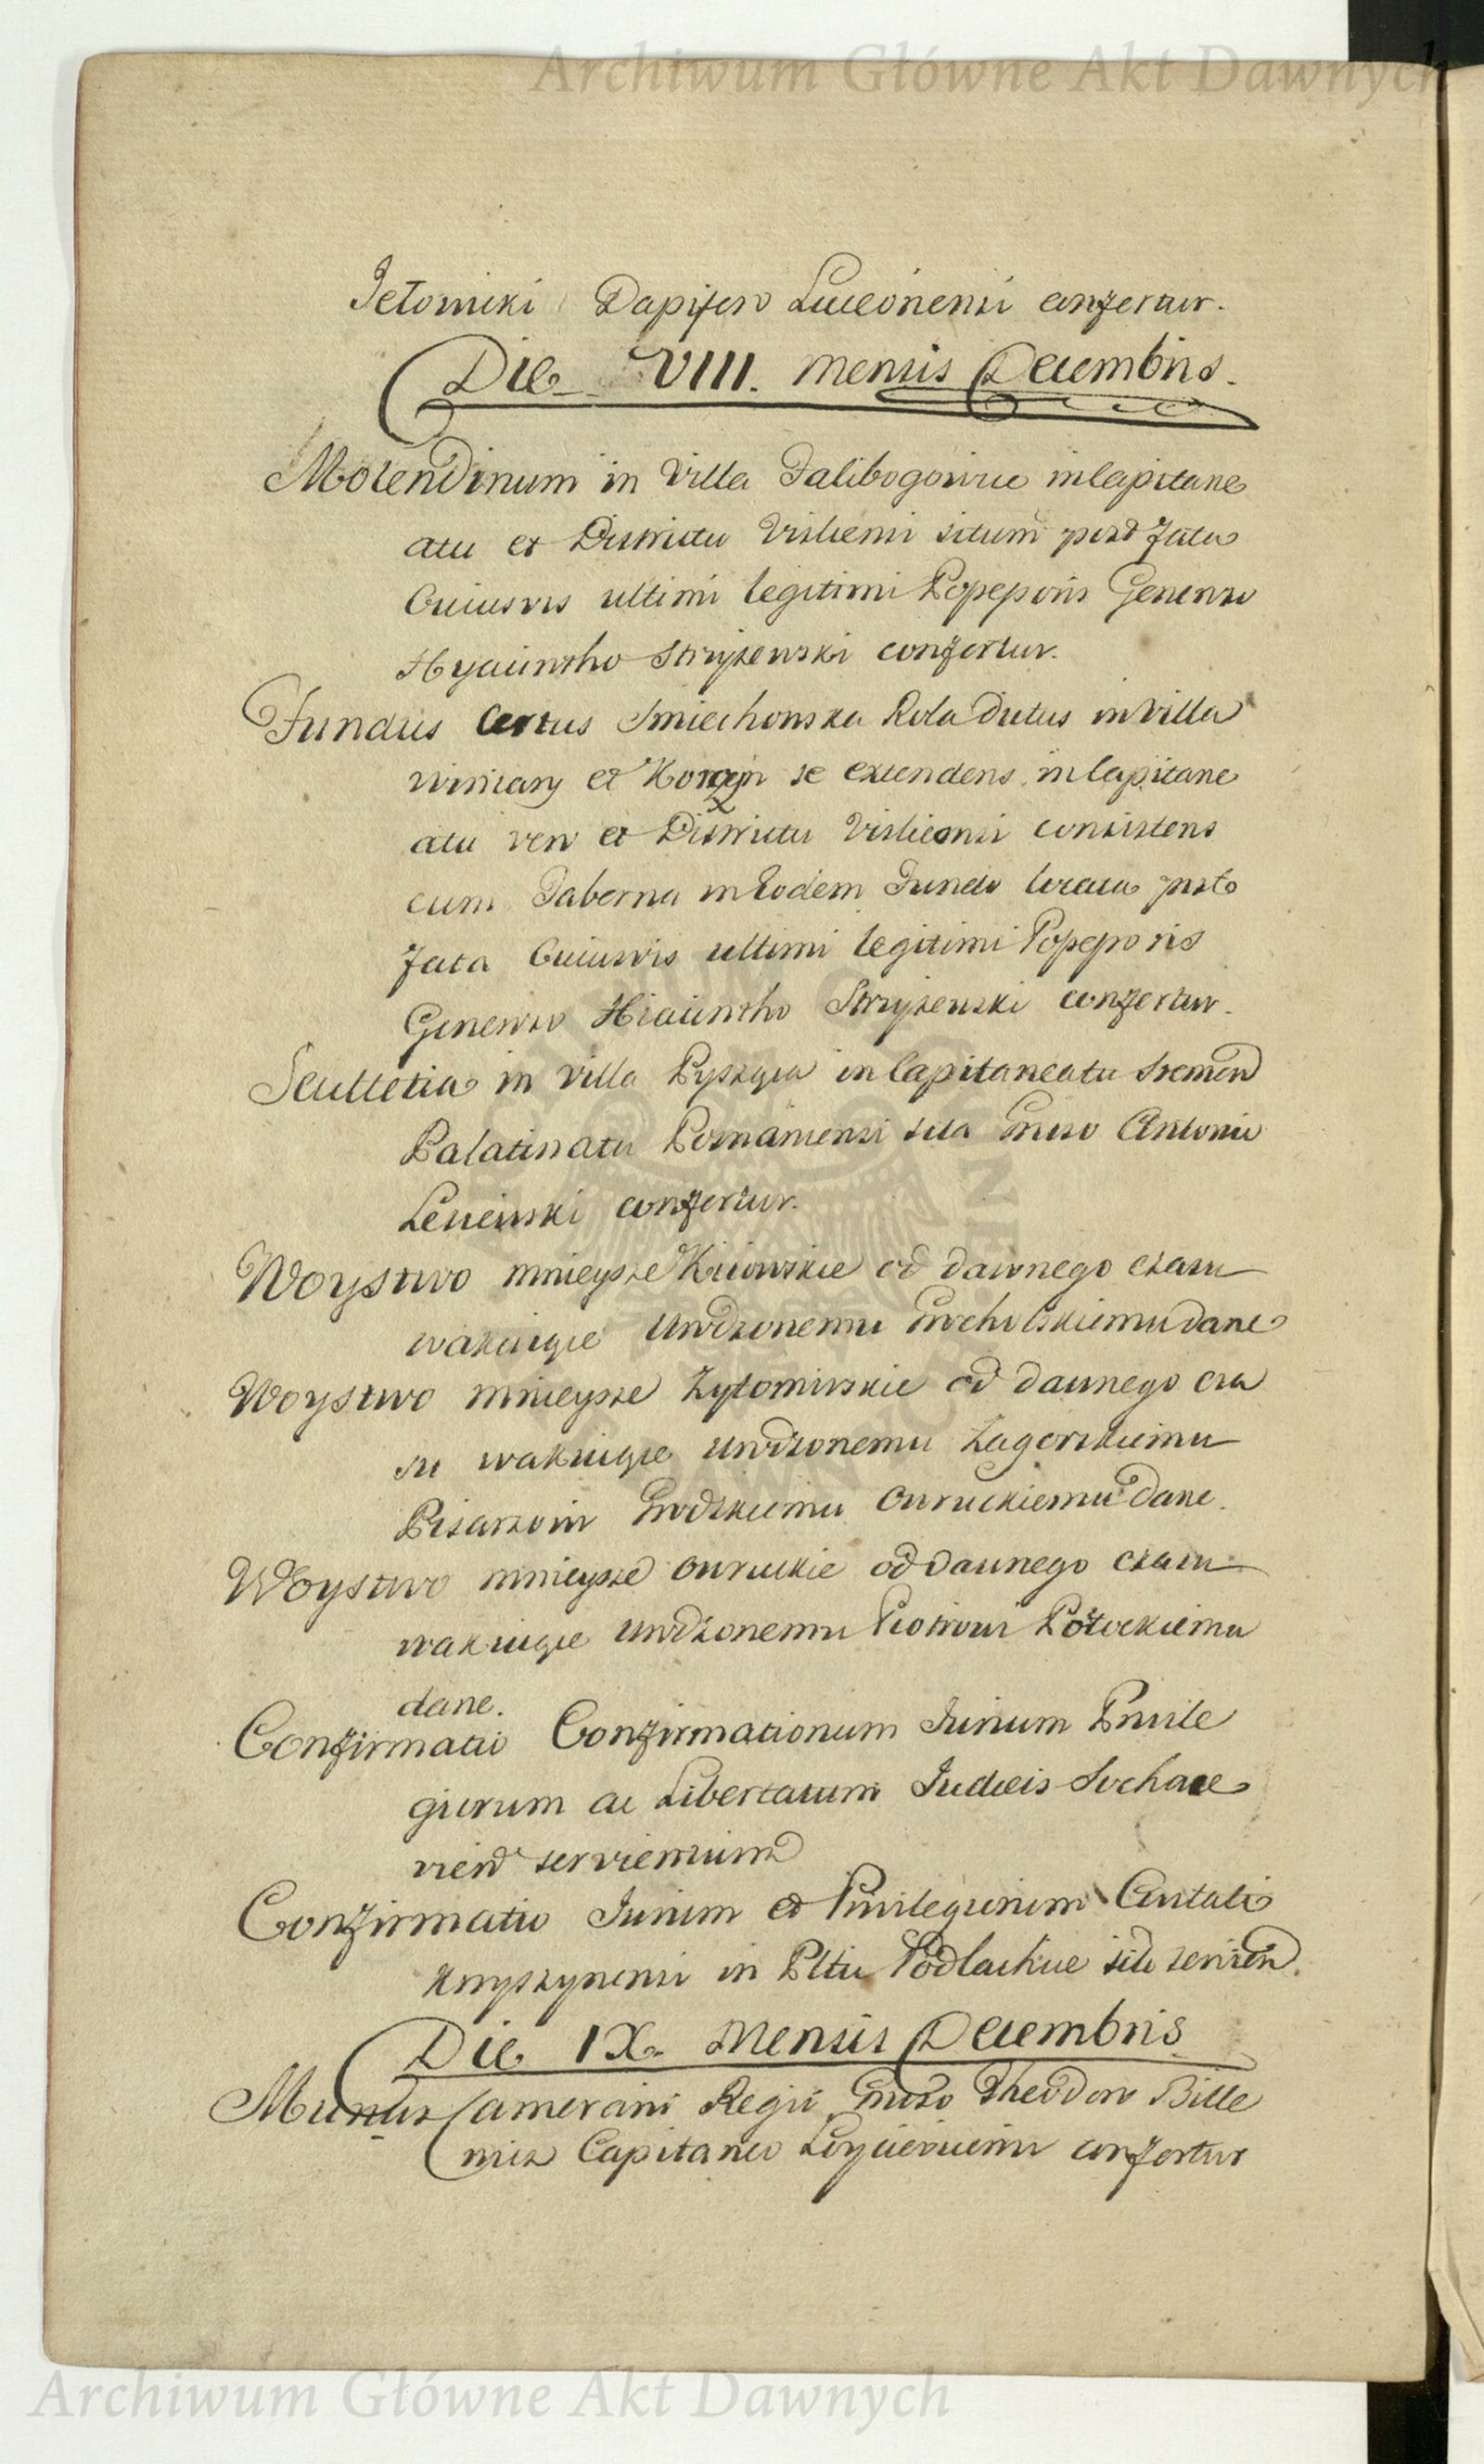 Archiwum Główne Akt Dawnych
Jełowicki Dapifero Luceoriensi confertur.
Die VIII. Mensis Decembris.
Molendinum in Villa Dalibogowice in Capitane
atu et Districtu Visliensi situm post fata
Cuiusvis ultimi legitimi Possessoris Generoso
Hyacintho Stryżewski confertur.
Fundus Certus Smiechowska Rola dictus in Villa
Winiary et se extendens in Capitane
atu vero et Districtu Vislicensi consistens
cum Taberna in Eodem Fundo locata post
fata Cuiusvis ultimi legitimi Possessoris
Generoso Hiacintho Stryżewski confertur.
Scultetia in villa Pysząca in Capitaneatu Sremen
Palatinatu Posnaniensi sita Gnroso Antonio
confertur.
Woystwo mnieysze Kiiowskie od dawnego czasu
wakuiące Urodzonemu Grocholskiemu dane
Woystwo mnieysze Zytomirskie od dawnego cza
su wakuiące Urodzonemu Zagorskiemu
Pisarzowi Grodzkiemu Owruckiemu dane.
Woystwo mnieysze Owruckie od dawnego czasu
wakuiące Urodzonemu Piotrowi Potockiemu
dane.
Confirmatio Confirmationum Jurium Privile
giorum ac Libertatum Judaeis Sochace
vien servientium
Confirmatio Jurium et Privilegiorum Civitati
Knyszynensi in Pltu Podlachiae sitae servien.
Die IX. Mensis Decembris
Munus Camerarii Regii Gnroso Theodoro Bille
wicz Capitaneo confertur
Archiwum Główne Akt Dawnych